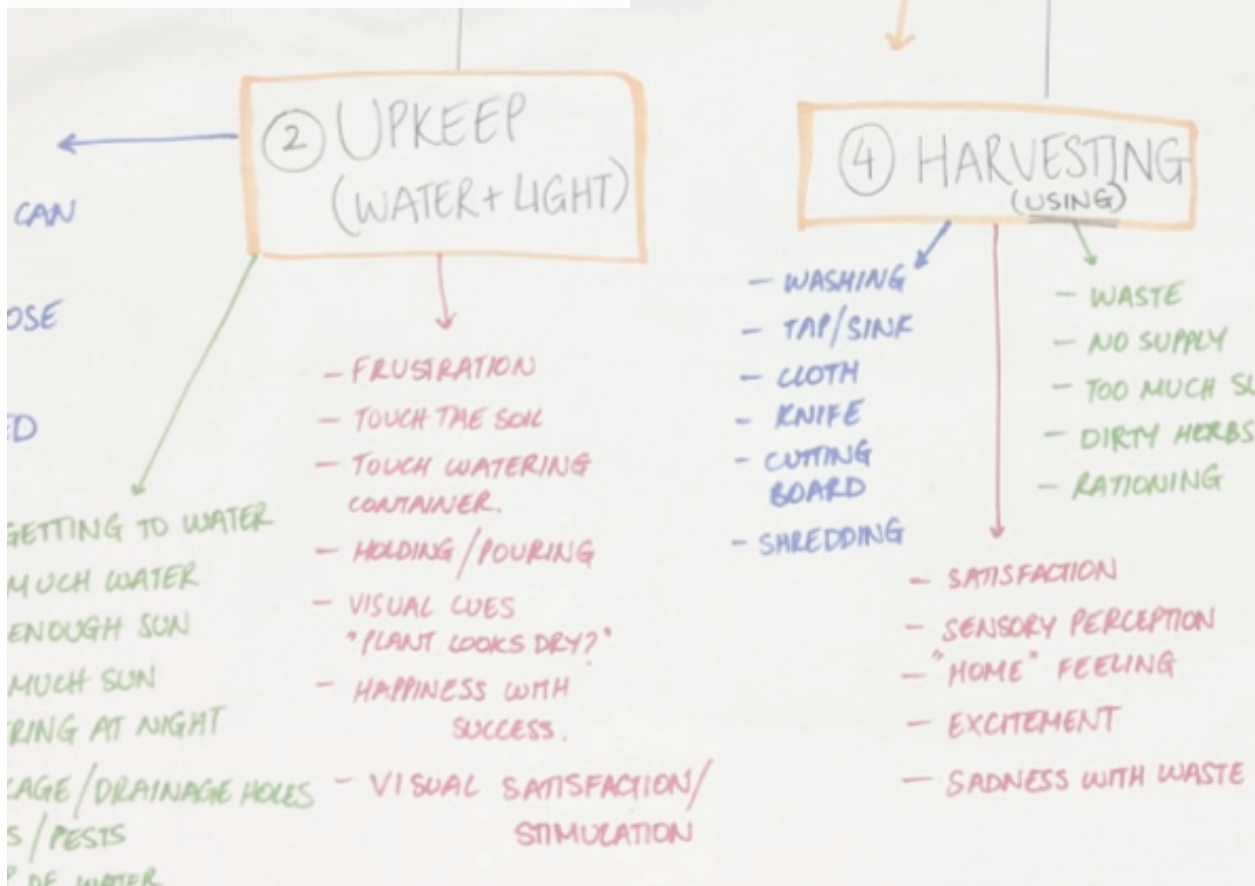 ② UPKEEP
(WATER + LIGHT)
CAN
OSE
ED
GETTING TO WATER
MUCH WATER
ENOUGH SUN
MUCH SUN
RING AT NIGHT
CAGE/DRAINAGE HOLES
S/PESTS
OF WATER
- FRUSTRATION
- TOUCH THE SOIL
- TOUCH WATERING
CONTAINER.
- HOLDING/POURING
- VISUAL CUES
"PLANT LOOKS DRY?"
- HAPPINESS WITH
SUCCESS.
- VISUAL SATISFACTION/
STIMULATION
④ HARVESTING
(USING)
- WASHING
- TAP/SINK
- CLOTH
- KNIFE
- CUTTING
BOARD
- SHREDDING
- WASTE
- NO SUPPLY
- TOO MUCH SU
- DIRTY HERBS
- RATIONING
- SATISFACTION
- SENSORY PERCEPTION
- "HOME" FEELING
- EXCITEMENT
- SADNESS WITH WASTE